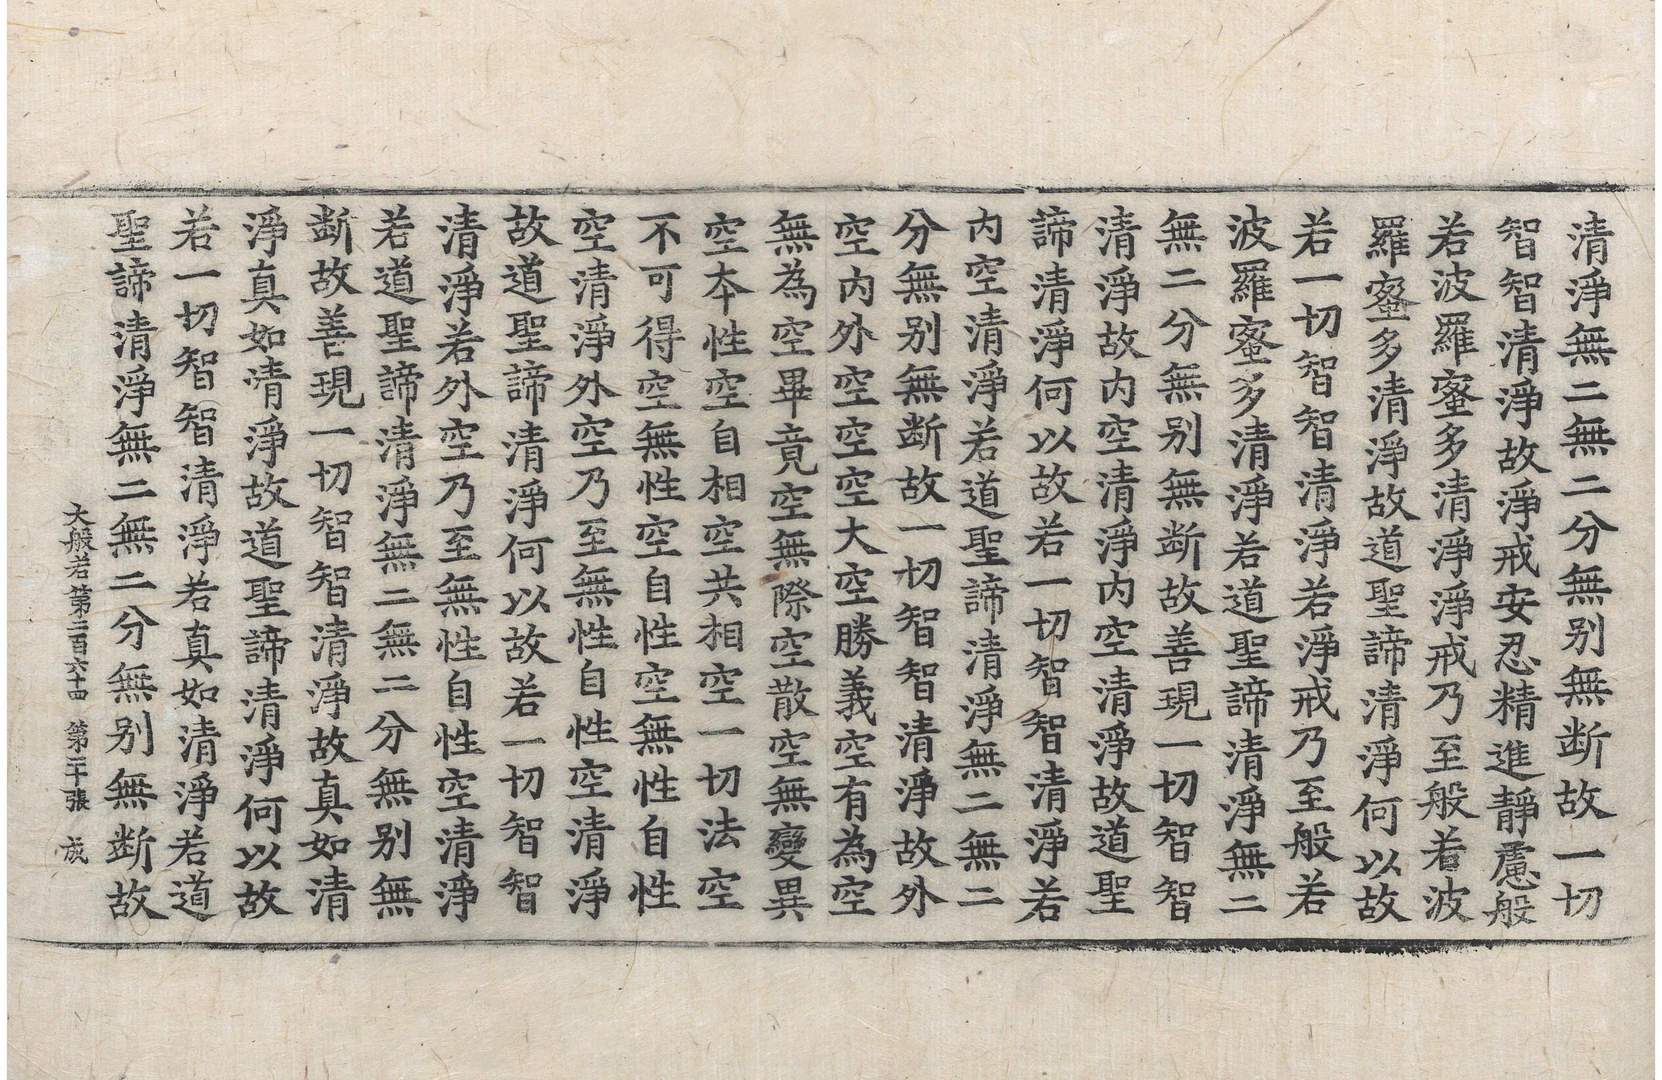 清淨無二無二分無别無断故一切
智智清淨故淨戒安忍精進靜慮般
若波羅蜜多清淨淨戒乃至般若波
羅蜜多清淨故道聖諦清淨何以故
若一切智智清淨若淨戒乃至般若
波羅蜜多清淨若道聖諦清淨無二
無二分無别無断故善現一切智智
清淨故内空清淨内空清淨故道聖
諦清淨何以故若一切智智清淨若
内空清淨若道聖諦清淨無二無二
分無别無断故一切智智清淨故外
空内外空空空大空勝義空有為空
無為空畢竟空無際空散空無變異
空本性空自相空共相空一切法空
不可得空無性空自性空無性自性
空清淨外空乃至無性自性空清淨
故道聖諦清淨何以故若一切智智
清淨若外空乃至無性自性空清淨
若道聖諦清淨無二無二分無别無
断故善現一切智智清淨故真如清
淨真如清淨故道聖諦清淨何以故
若一切智智清淨若真如清淨若道
聖諦清淨無二無二分無别無断故
大般若第二百六十四 第二十張